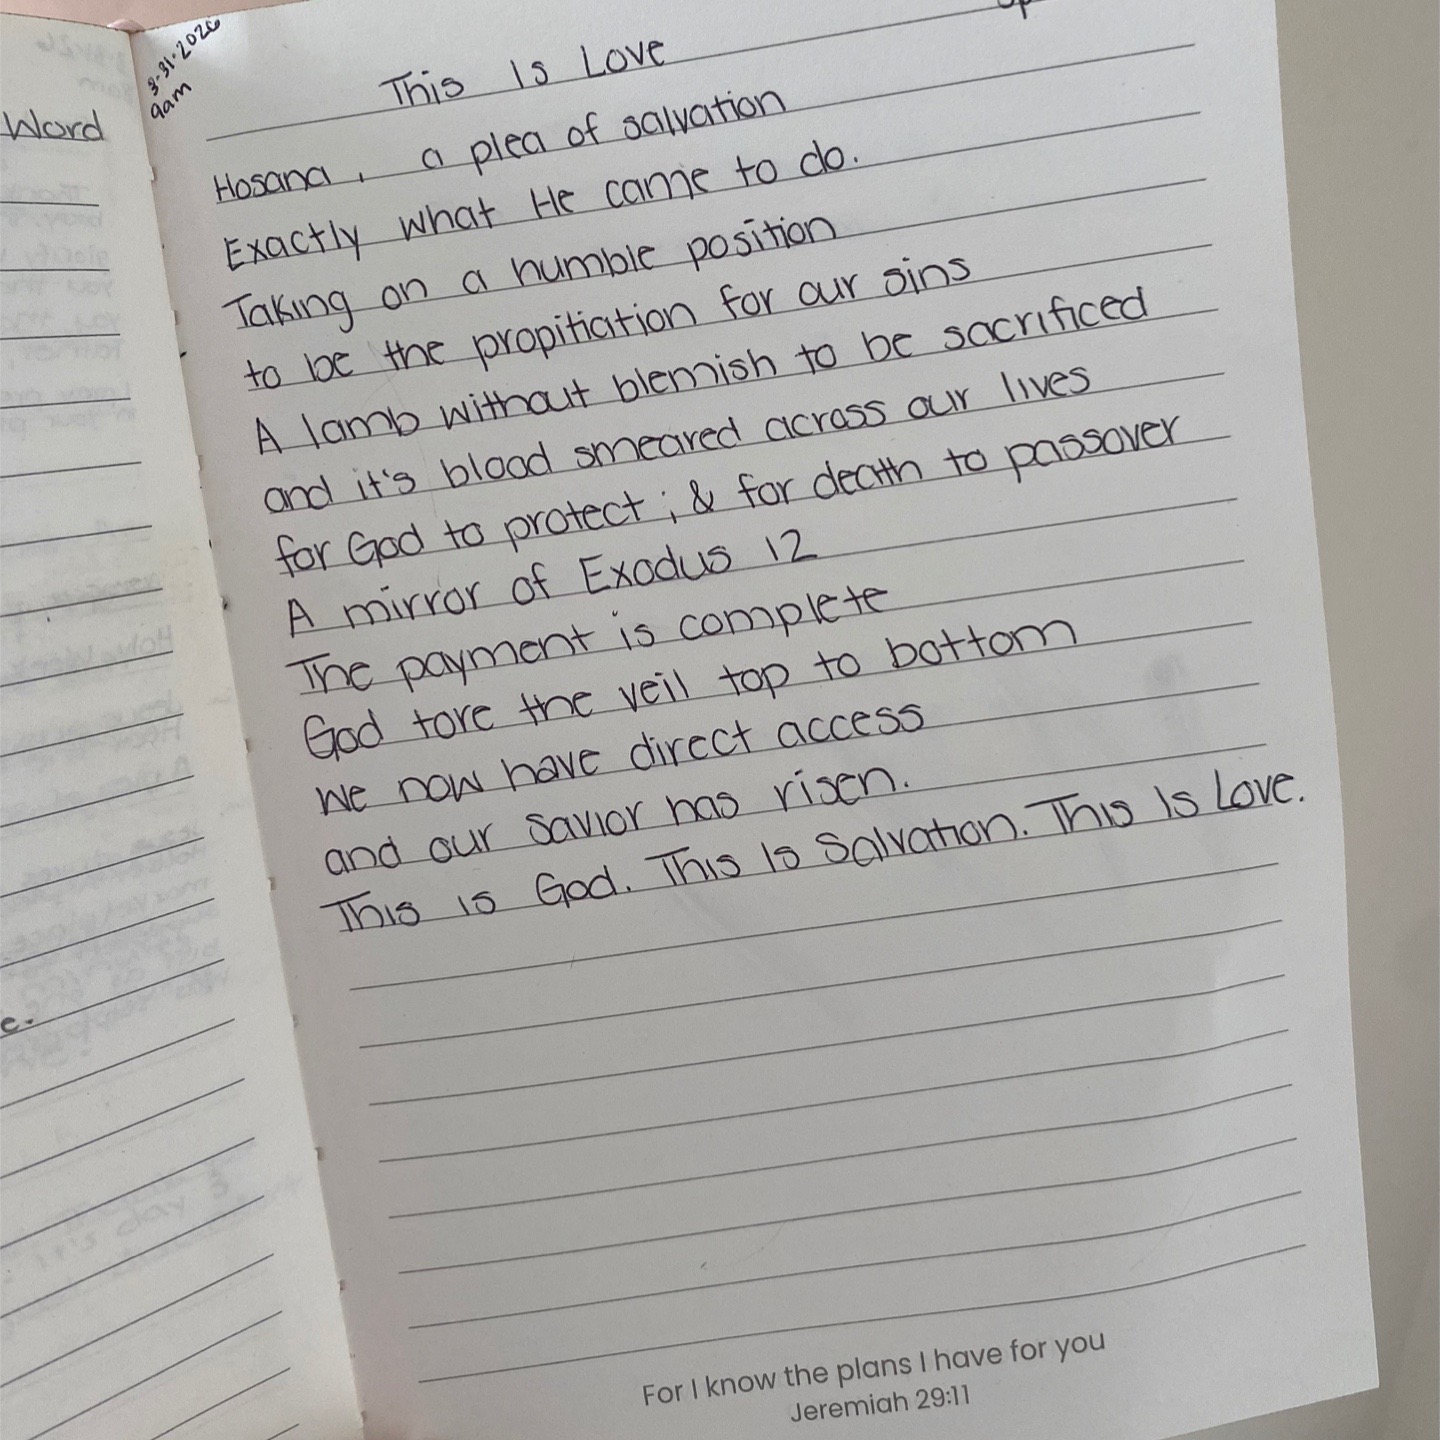 Word
3-31-2026
9am
This Is Love
Hosana, a plea of salvation
Exactly what He came to do.
Taking on a humble position
to be the propitiation for our sins
A lamb without blemish to be sacrificed
and it's blood smeared across our lives
for God to protect; & for death to passover
A mirror of Exodus 12
The payment is complete
God tore the veil top to bottom
We now have direct access
and our savior has risen.
This is God. This Is Salvation. This Is Love.
For I know the plans I have for you
Jeremiah 29:11